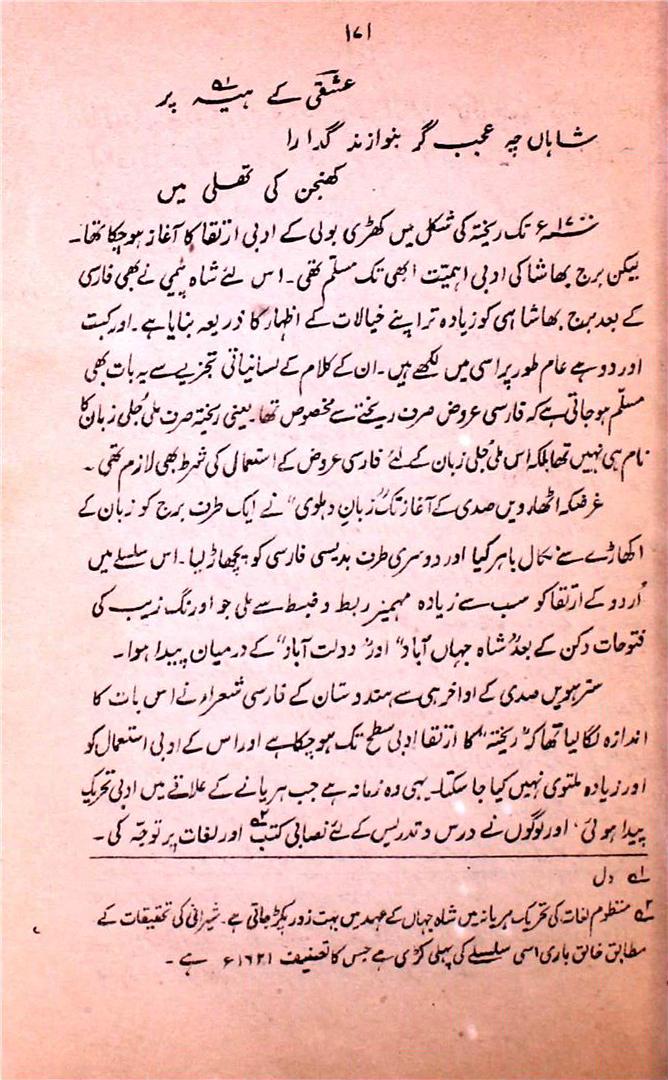 ۱۷۱
عشقی کے ہیہ۱؎ پر
شاہاں چہ عجب گر بنوازند گدا را
کھنجن کی تھلی میں
۱۷۰۰ء تک ریختہ کی شکل میں کھڑی بولی کے ادبی ارتقا کا آغاز ہو چکا تھا۔
لیکن برج بھاشا کی ادبی اہمیت ابھی تک مسلم تھی۔ اس لئے شاہ پیمی نے بھی فارسی
کے بعد برج بھاشا ہی کو زیادہ تر اپنے خیالات کے اظہار کا ذریعہ بنایا ہے۔ اور کبت
اور دوہے عام طور پر اسی میں لکھے ہیں۔ ان کے کلام کے لسانیاتی تجزیے سے یہ بات بھی
مسلّم ہو جاتی ہے کہ فارسی عروض صرف ریختے سے مخصوص تھا۔ یعنی ریختہ صرف ملی جُلی زبان کا
نام ہی نہیں تھا بلکہ اس ملی جُلی زبان کے لئے فارسی عروض کے استعمال کی شرط بھی لازم تھی۔
غرضکہ اٹھارویں صدی کے آغاز تک "زبانِ دہلوی" نے ایک طرف برج کو زبان کے
اکھاڑے سے نکال باہر کیا اور دوسری طرف بدیسی فارسی کو پچھاڑ لیا۔ اس سلسلے میں
اُردو کے ارتقا کو سب سے زیادہ مہمیز ربط و ضبط سے ملی جو اورنگ زیب کی
فتوحات دکن کے بعد "شاہ جہاں آباد" اور "دولت آباد" کے درمیان پیدا ہوا۔
سترہویں صدی کے اواخر ہی سے ہندوستان کے فارسی شعراء نے اس بات کا
اندازہ لگا لیا تھا کہ "ریختہ" کا ارتقا ادبی سطح تک ہو چکا ہے اور اس کے ادبی استعمال کو
اور زیادہ ملتوی نہیں کیا جا سکتا۔ یہی وہ زمانہ ہے جب ہریانے کے علاقے میں ادبی تحریک
پیدا ہوئی، اور لوگوں نے درس و تدریس کے لئے نصابی کتب۲؎ اور لغات پر توجّہ کی۔
۱؎ دل
۲؎ منظوم لغات کی تحریک ہریانہ میں شاہ جہاں کے عہد میں بہت زور پکڑ جاتی ہے۔ شیرانی کی تحقیقات کے
مطابق خالق باری اسی سلسلے کی پہلی کڑی ہے جس کا تصنیف ۱۶۲۱ء ہے۔